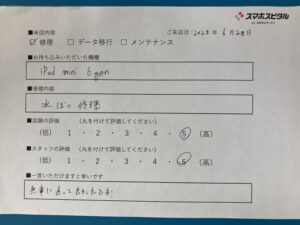 スマホスピタル
■来店内容
ご来店日 2025年6月28日
☑ 修理 □ データ移行 □ メンテナンス
■お持ち込みいただいた機種
iPad mini 6gen
■修理内容
水ぽつ修理
■店舗の評価 (丸を付けて評価してください)
(低) 1 ・ 2 ・ 3 ・ 4 ・ ⑤ (高)
■スタッフの評価 (丸を付けて評価してください)
(低) 1 ・ 2 ・ 3 ・ 4 ・ ⑤ (高)
■一言いただけますと幸いです
無事に直って